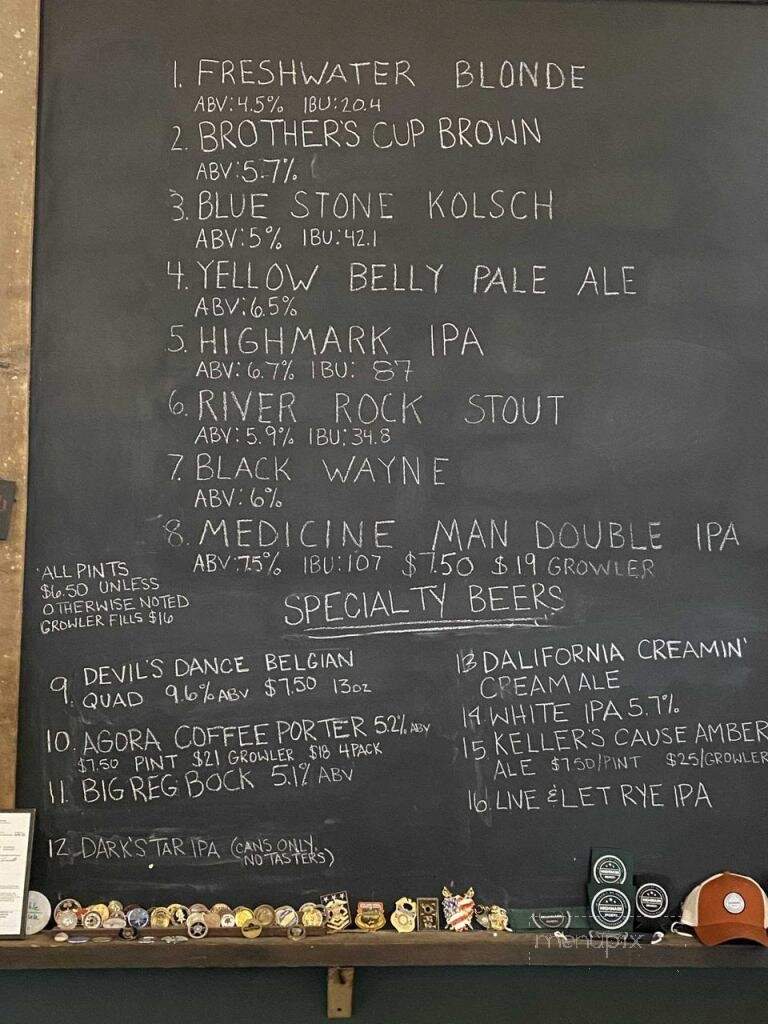 1. FRESHWATER BLONDE
ABV: 4.5% IBU: 20.4
2. BROTHER'S CUP BROWN
ABV: 5.7%
3. BLUE STONE KOLSCH
ABV: 5% IBU: 42.1
4. YELLOW BELLY PALE ALE
ABV: 6.5%
5. HIGHMARK IPA
ABV: 6.7% IBU: 87
6. RIVER ROCK STOUT
ABV: 5.9% IBU: 34.8
7. BLACK WAYNE
ABV: 6%
8. MEDICINE MAN DOUBLE IPA
ABV: 7.5% IBU: 107 $7.50 $19 GROWLER
ALL PINTS
$6.50 UNLESS
OTHERWISE NOTED
GROWLER FILLS $16
SPECIALTY BEERS
9. DEVIL'S DANCE BELGIAN
QUAD 9.6% ABV $7.50 13oz
10. AGORA COFFEE PORTER 5.2% ABV
$7.50 PINT $21 GROWLER $18 4PACK
11. BIG REG BOCK 5.1% ABV
12. DARK STAR IPA (CANS ONLY,
NO TASTERS)
13 DALIFORNIA CREAMIN'
CREAM ALE
14. WHITE IPA 5.7%
15. KELLER'S CAUSE AMBER
ALE $7.50/PINT $25/GROWLER
16. LIVE & LET RYE IPA
menupix